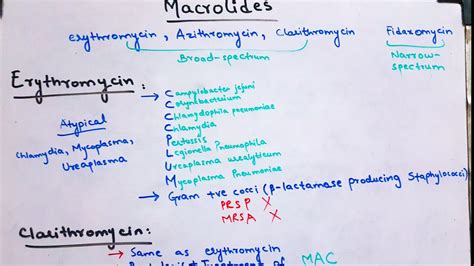 Macrolides
erythromycin, Azithromycin, Clarithromycin Fidaxomycin
Broad-spectrum Narrow-spectrum
Erythromycin:
→ Campylobacter jejuni
Corynebacterium
Atypical
Chlamydophila pneumoniae
Chlamydia, Mycoplasma,
Chlamydia
Ureaplasma
Pertussis
Legionella Pneumophila
Ureaplasma urealyticum
Mycoplasma Pneumoniae
→ Gram +ve cocci (β-lactamase producing Staphylococci)
PRSP X
MRSA X
Clarithromycin:
→ Same as erythromycin
Treatment of MAC